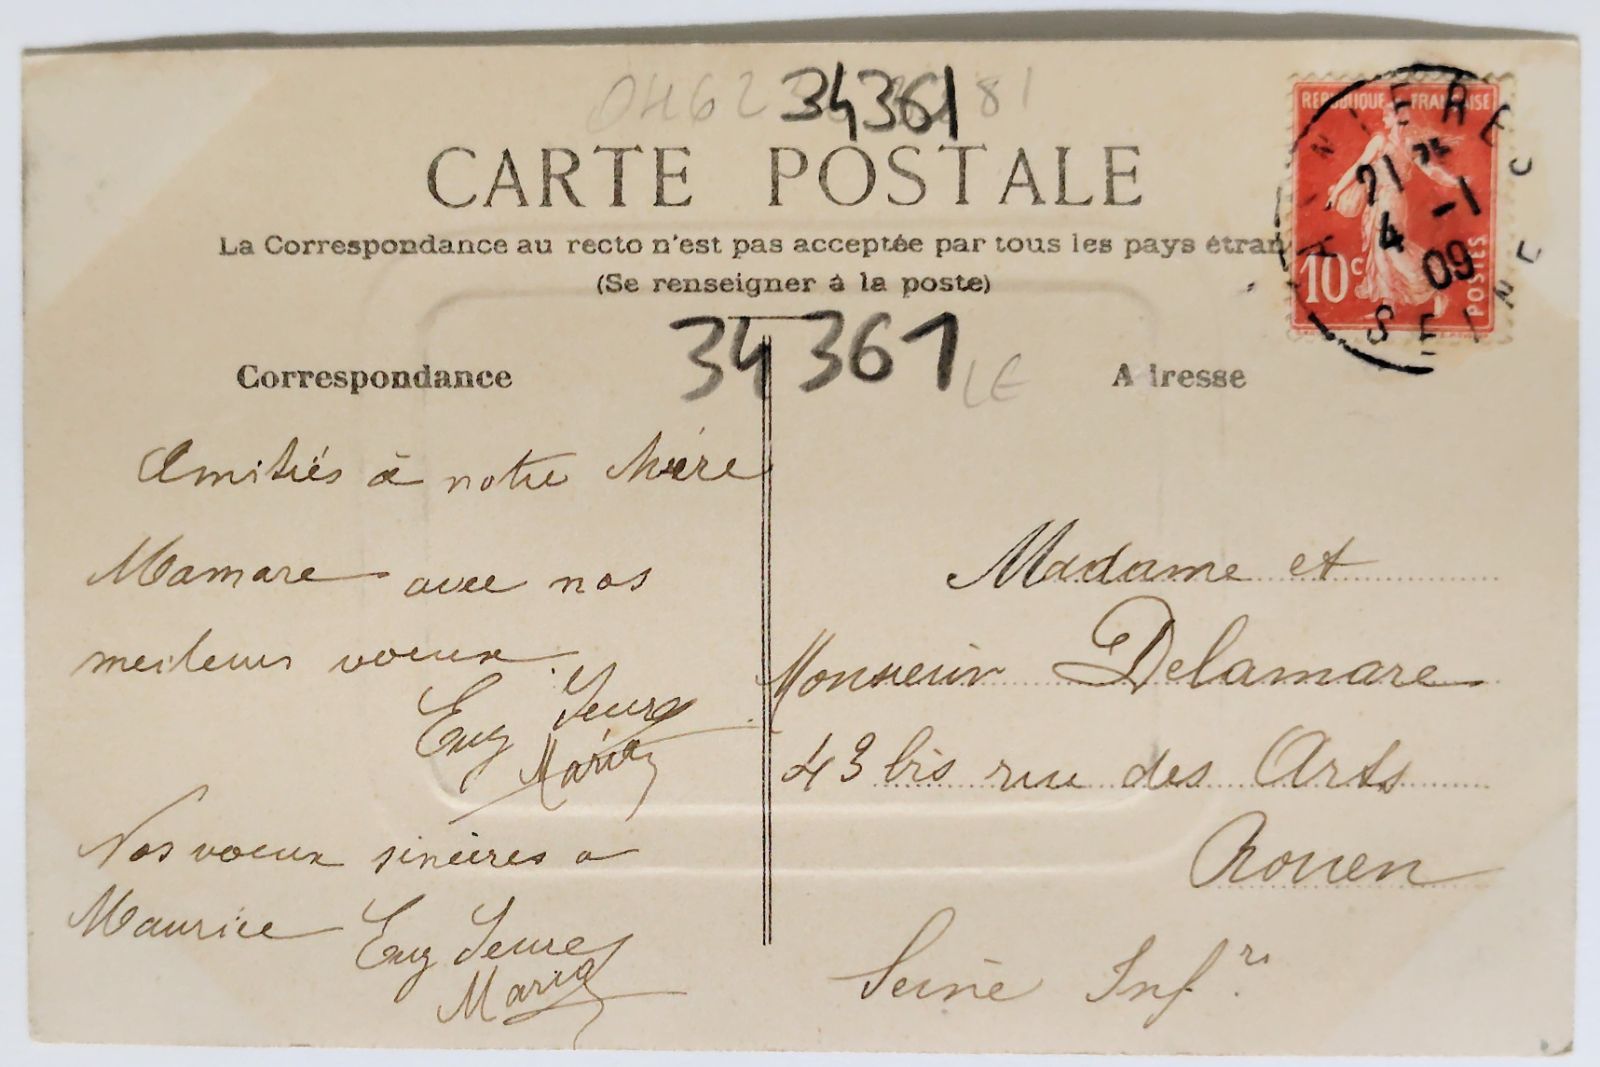 34361
CARTE POSTALE
La Correspondance au recto n'est pas acceptée par tous les pays étran
(Se renseigner à la poste)
34361
LE
Correspondance
Amitiés à notre
Mamare avec nos
meileurs voeux
Eug
Maria
Nos voeux sincères a
Maurice Eug
Maria
Adresse
Madame et
Monsieur Delamare
43 bis rue des Arts
Rouen
Seine Infre
REPUBLIQUE FRANÇAISE
10c
POSTES
ASNIERES
21 25
4 -1
09
SEINE